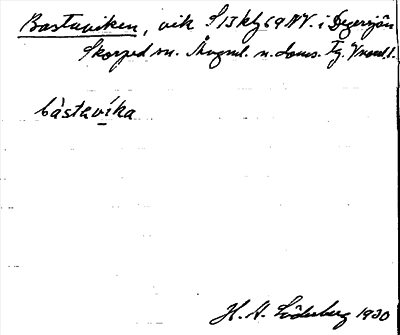 Bastuviken, vik S13 kl 69 NV. i Degersjön
Skorped sn. Ångml. n. doms. Tg. Vnorrl. l.
bàstevíka
H. A. Söderberg 1930